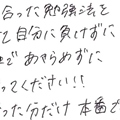 合った勉強法を
て自分に負けずに
まであきらめずに
ってください!!
った分だけ本番で